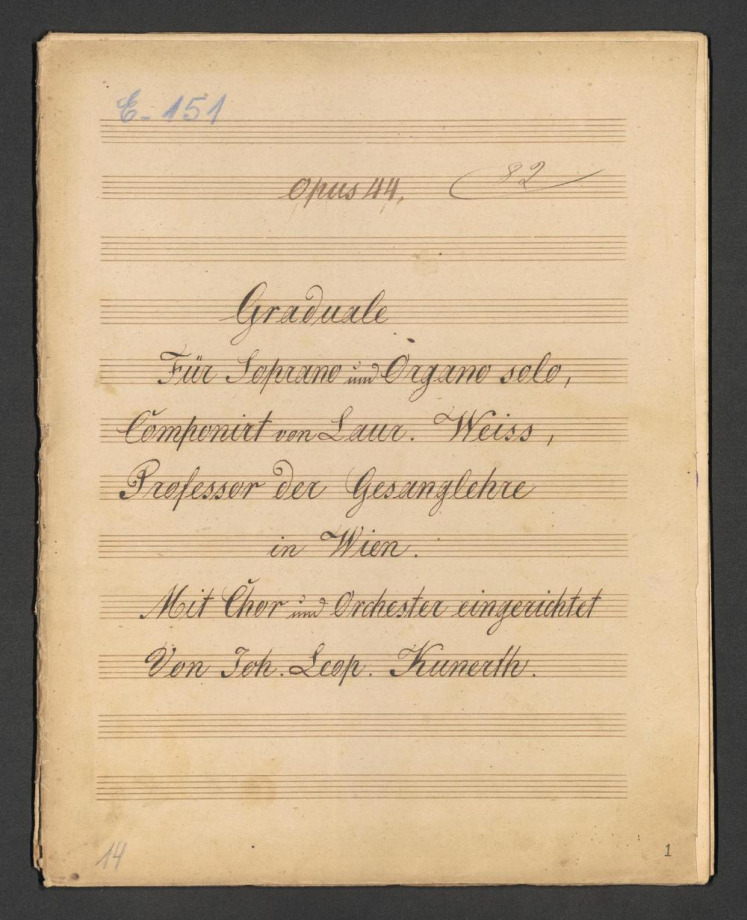 E-151
Opus 44, 82
Graduale
Für Soprano und Organo solo,
Componirt von Laur. Weiss,
Professor der Gesanglehre
in Wien.
Mit Chor und Orchester eingerichtet
Von Joh. Leop. Kunerth.
14
1